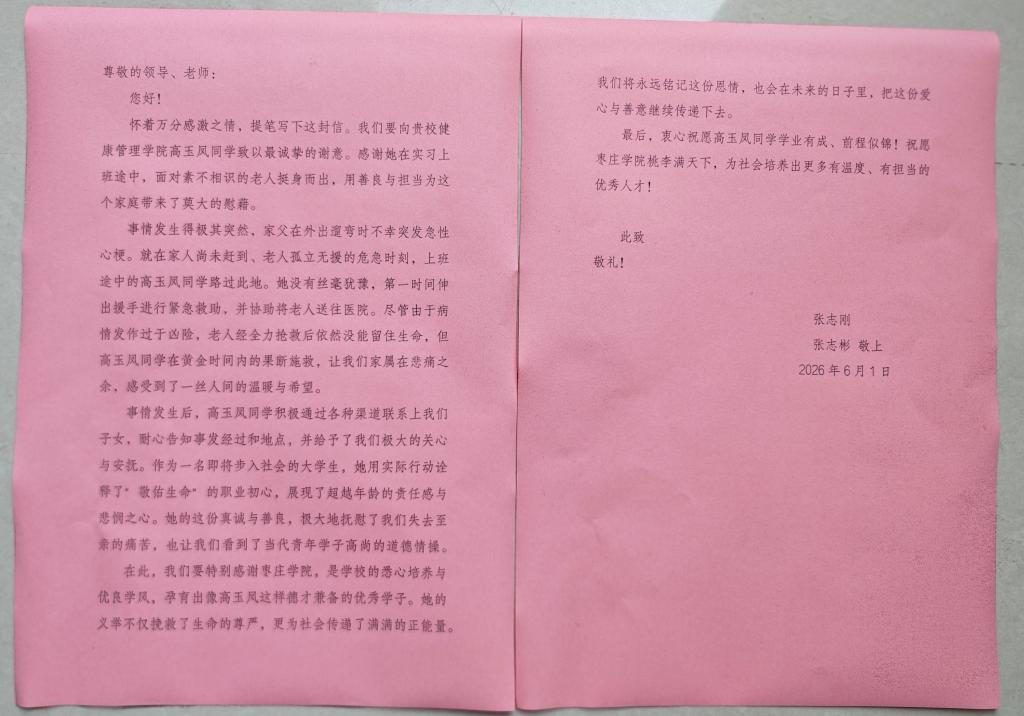 尊敬的领导、老师：
您好！
怀着万分感激之情，提笔写下这封信。我们要向贵校健
康管理学院高玉凤同学致以最诚挚的谢意。感谢她在实习上
班途中，面对素不相识的老人挺身而出，用善良与担当为这
个家庭带来了莫大的慰藉。
事情发生得极其突然，家父在外出遛弯时不幸突发急性
心梗。就在家人尚未赶到、老人孤立无援的危急时刻，上班
途中的高玉凤同学路过此地。她没有丝毫犹豫，第一时间伸
出援手进行紧急救助，并协助将老人送往医院。尽管由于病
情发作过于凶险，老人经全力抢救后依然没能留住生命，但
高玉凤同学在黄金时间内的果断施救，让我们家属在悲痛之
余，感受到了一丝人间的温暖与希望。
事情发生后，高玉凤同学积极通过各种渠道联系上我们
子女，耐心告知事发经过和地点，并给予了我们极大的关心
与安抚。作为一名即将步入社会的大学生，她用实际行动诠
释了“敬佑生命”的职业初心，展现了超越年龄的责任感与
悲悯之心。她的这份真诚与善良，极大地抚慰了我们失去至
亲的痛苦，也让我们看到了当代青年学子高尚的道德情操。
在此，我们要特别感谢枣庄学院，是学校的悉心培养与
优良学风，孕育出像高玉凤这样德才兼备的优秀学子。她的
义举不仅挽救了生命的尊严，更为社会传递了满满的正能量。
我们将永远铭记这份恩情，也会在未来的日子里，把这份爱
心与善意继续传递下去。
最后，衷心祝愿高玉凤同学学业有成、前程似锦！祝愿
枣庄学院桃李满天下，为社会培养出更多有温度、有担当的
优秀人才！
此致
敬礼！
张志刚
张志彬 敬上
2026年6月1日